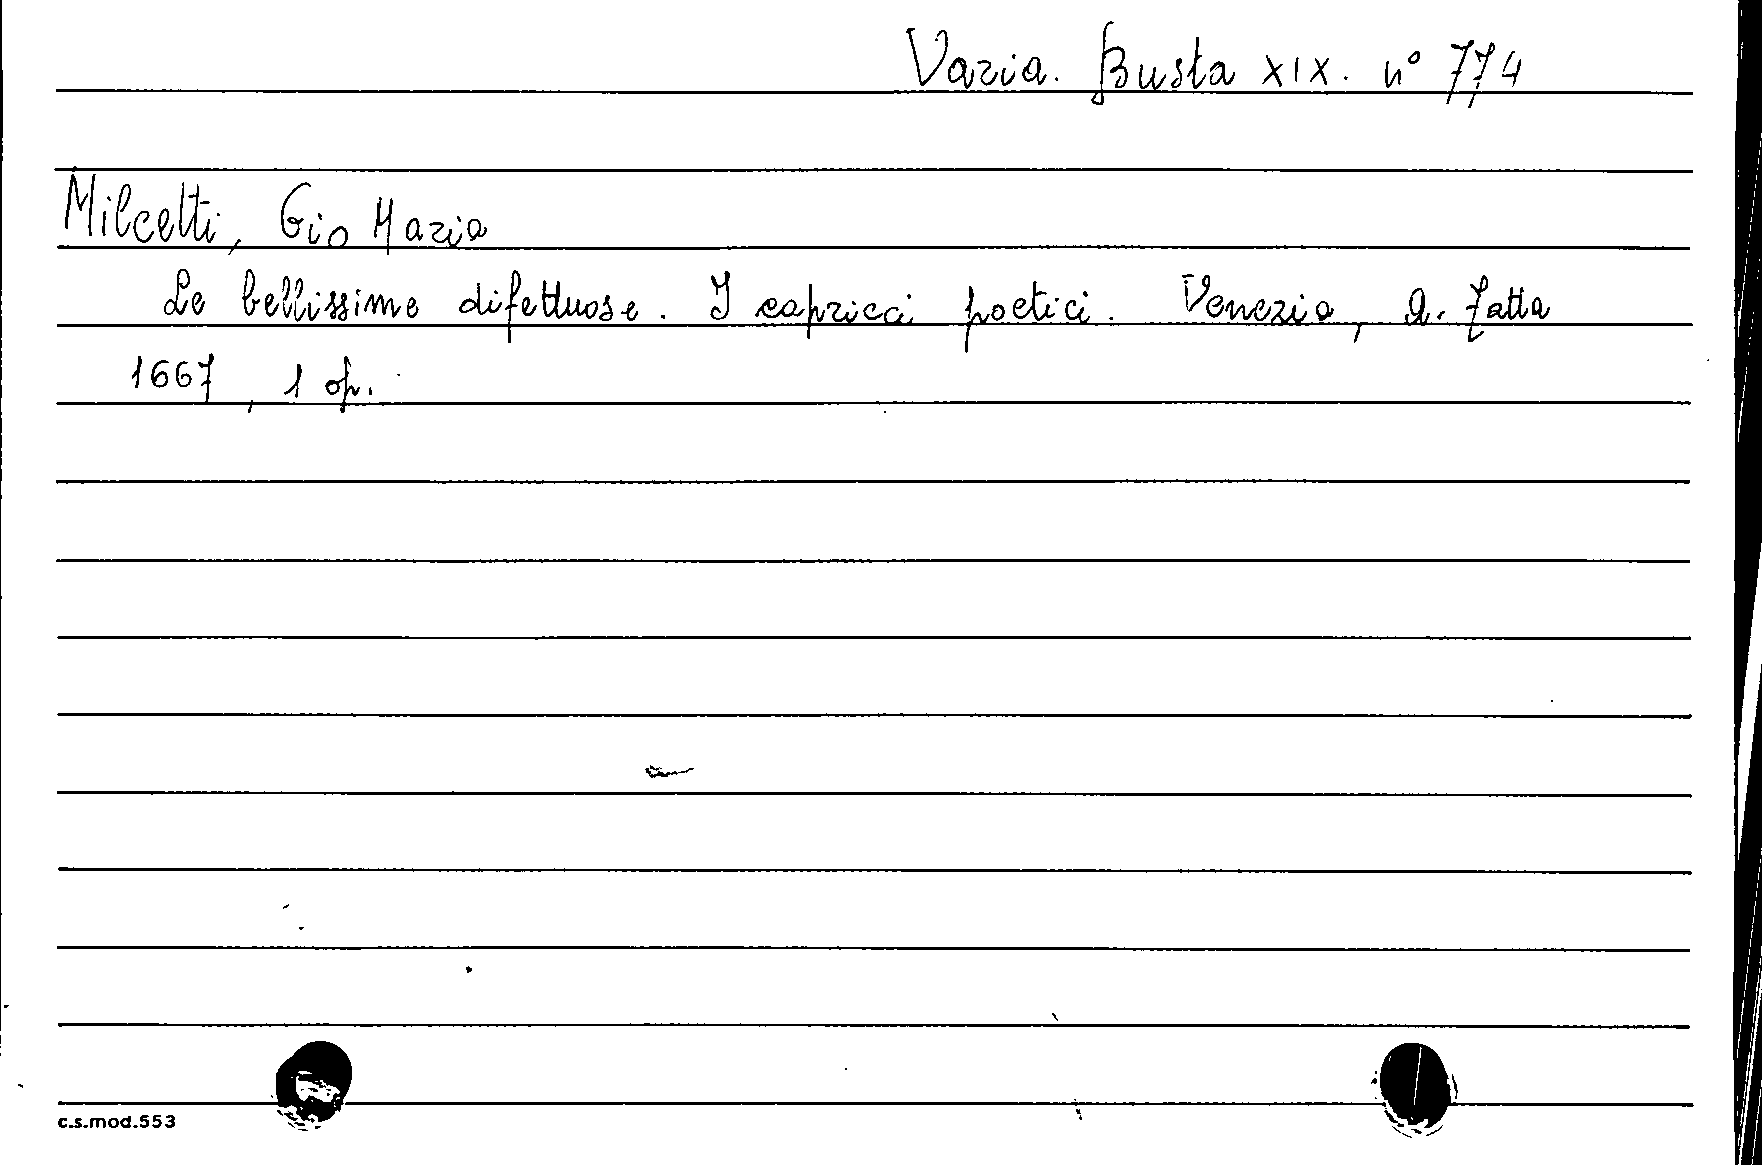 Varia. Busta XIX. n° 774
Milcetti, Gio Maria
Le bellissime difettuose. I capricci poetici. Venezia, A. Zatta
1667, 1 op.
c.s.mod.553